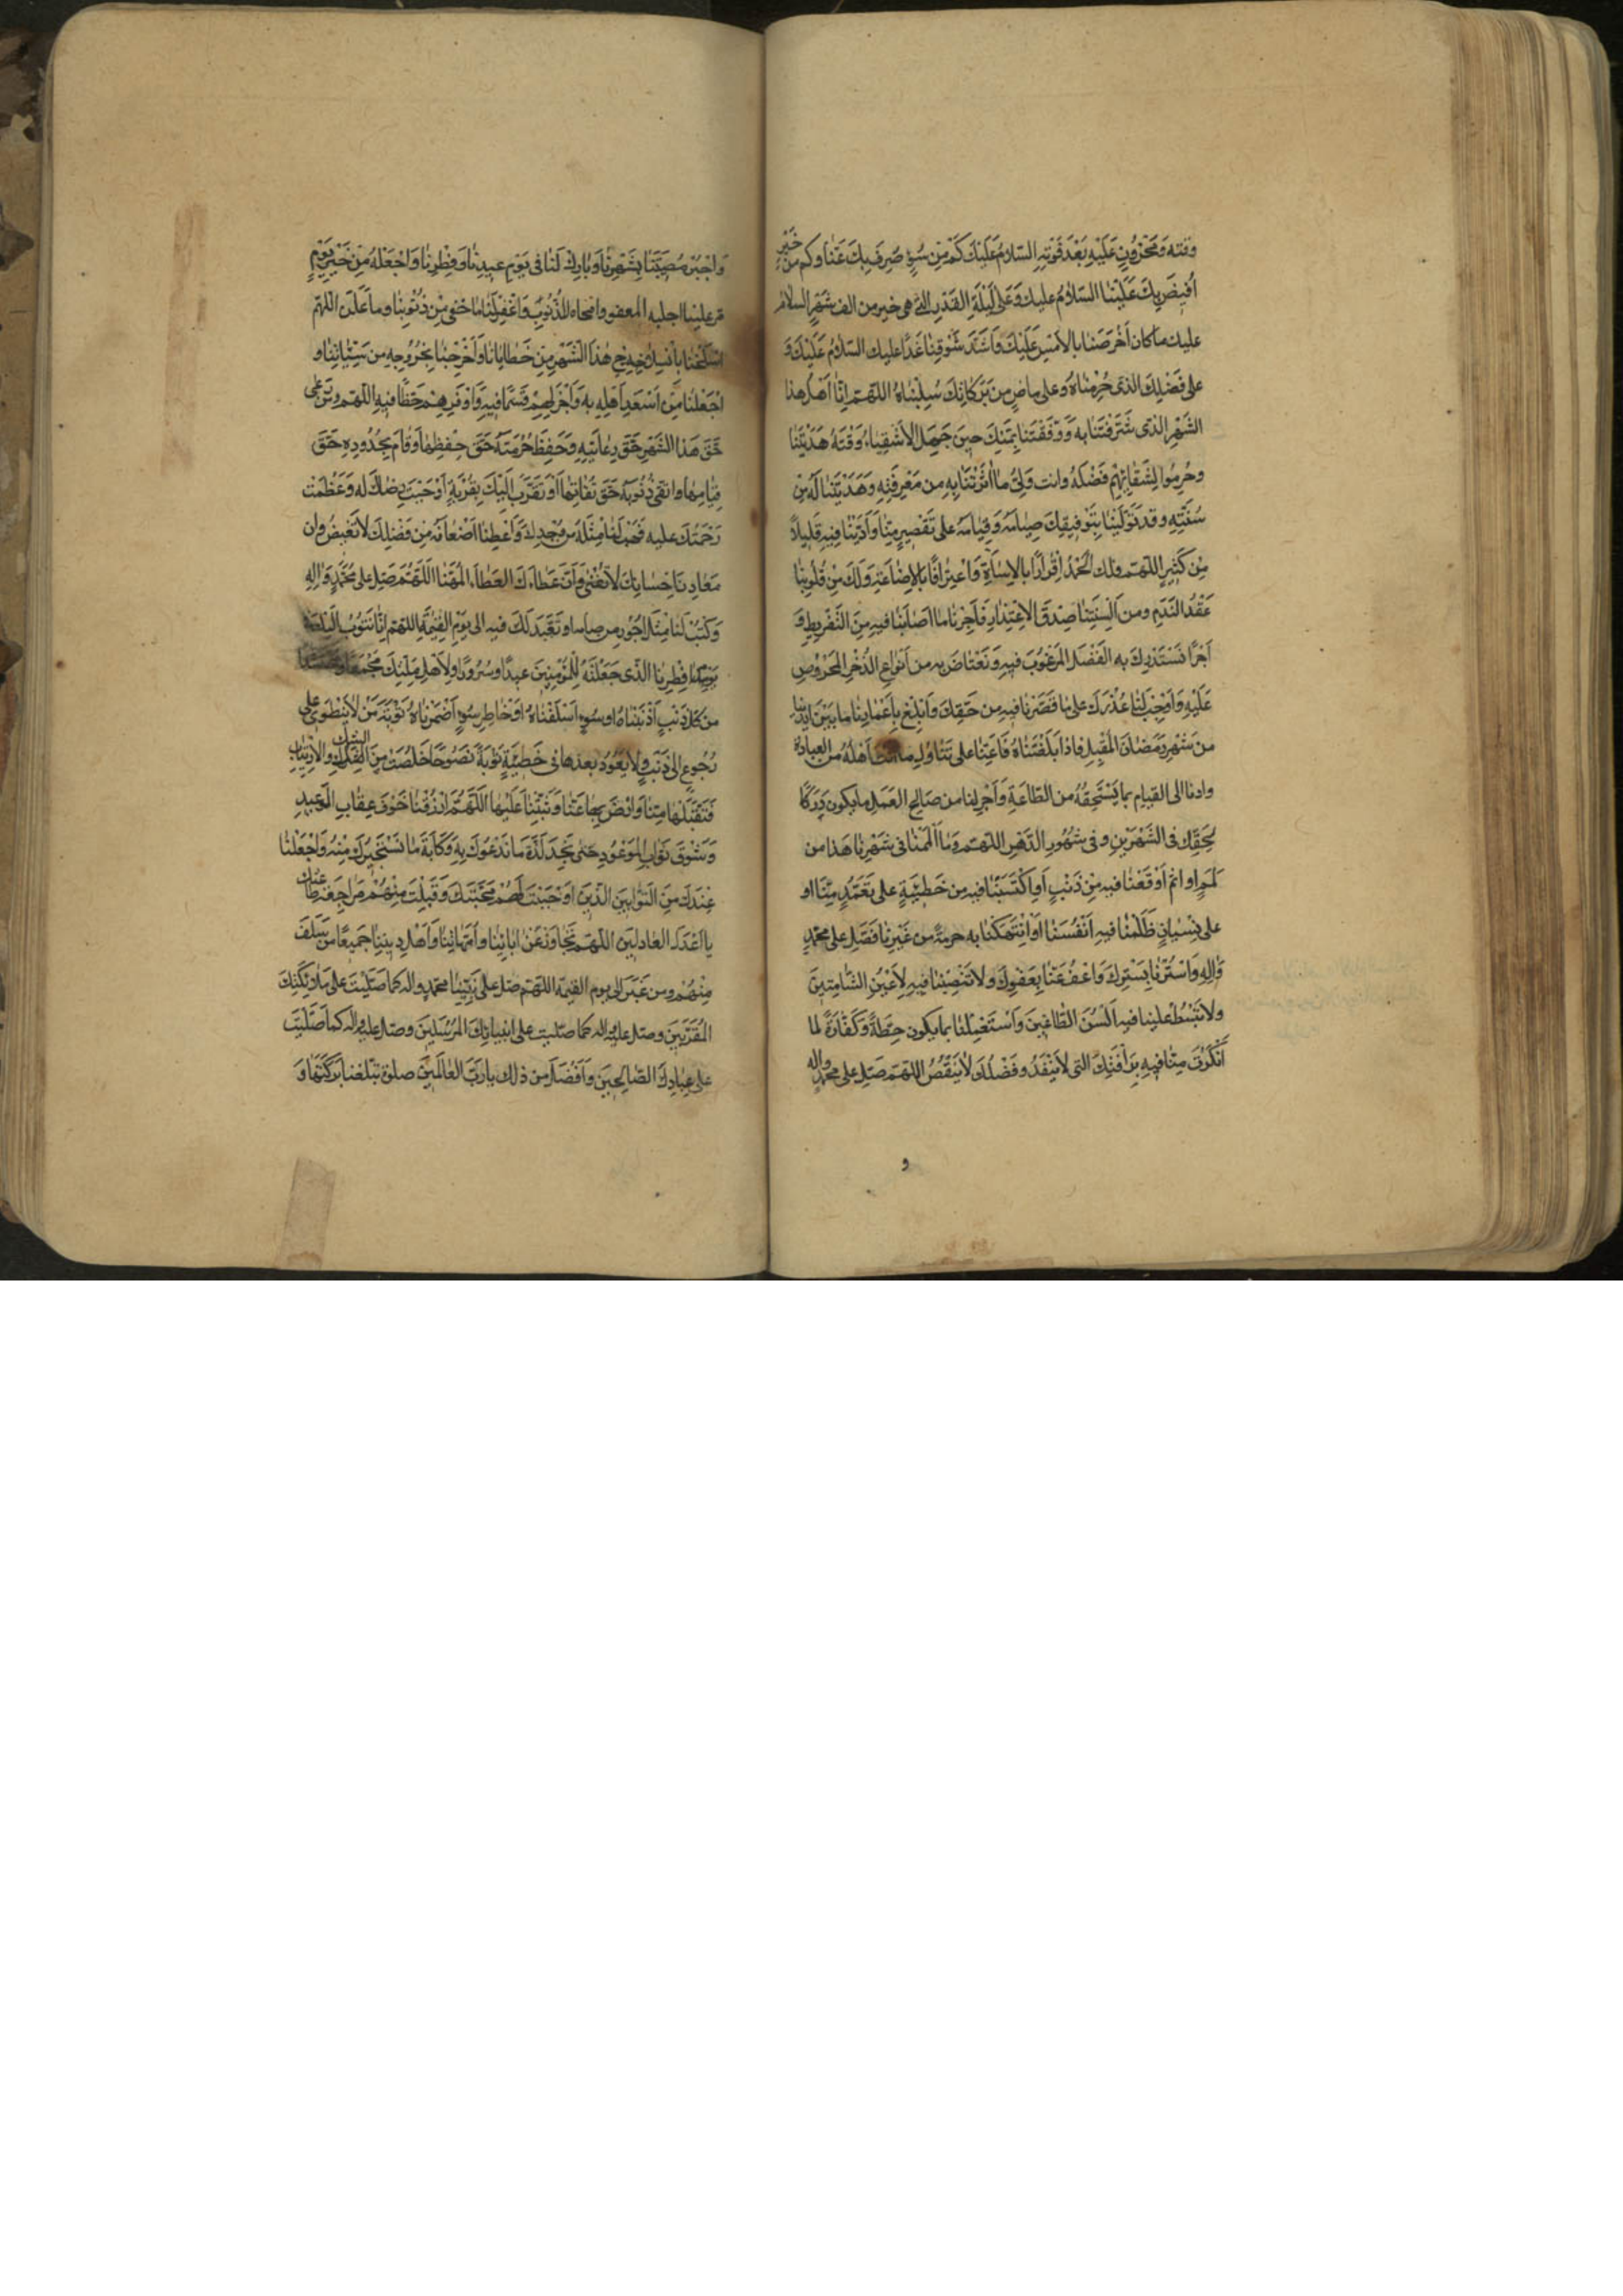 وقته ومحزون عليه بعد فوته السلام عليك كم من سوء صرف بك عنا وكم من خير
افيض بك علينا السلام عليك وعلى ليلة القدر التي هى خير من الف شهر السلام
عليك ما كان احرصنا بالامس عليك واشد شوقنا غدا عليك السلام عليك و
على فضلك الذى حرمناه وعلى ماض من بركاتك سلبناه اللهم انا اهل هذا
الشهر الذى شرفتنا به ووفقتنا بمنك حين جهل الاشقياء وقته هديتنا
وحرموا لشقائهم فضله وانت ولى ما اثرتنا به من معرفته وهديتنا له من
سنته وقد تولينا بتوفيقك صيامه وقيامه على تقصير منا وادينا فيه قليلا
من كثير اللهم ولك الحمد اقرارا بالاساءة واعترافا بالاضاعة ولك من قلوبنا
عقد الندم ومن السنتنا صدق الاعتذار فاجرنا ما اصابنا فيه من التفريط و
اجرا نستدرك به الفضل المرغوب فيه ونعتاض به من انواع الذخر المحروص
عليه واوجب لنا عذرك على ما قصرنا فيه من حقك وابلغ باعمارنا ما بين ايدينا
من شهر رمضان المقبل فاذا بلغتناه فاعنا على تناول ما انت اهله من العبادة
وادنا الى القيام بما يستحقه من الطاعة واجر لنا من صالح العمل ما يكون دركا
لحقك فى الشهرين وفى شهور الدهر اللهم وما الممنا فى شهرنا هذا من
لمم او اثم او وقعنا فيه من ذنب او اكتسبنا فيه من خطيئة على تعمد منا او
على نسيان ظلمنا فيه انفسنا او انتهكنا به حرمة من غيرنا فصل على محمد
واله واسترنا بسترك واعف عنا بعفوك ولا تنصبنا فيه لاعين الشامتين
ولا تبسط علينا فيه السن الطاغين واستعملنا بما يكون حطة وكفارة لما
انكرت منا فيه برأفتك التى لا تنفد وفضلك لا ينقص اللهم صل على محمد واله
و
واجبر مصيبتنا بشهرنا وبارك لنا فى يوم عيدنا وفطرنا واجعله من خير يوم
مر علينا اجلبه المعفو وامحاه للذنوب واغفر لنا ما خفى من ذنوبنا وما علن اللهم
اسلخنا بانسلاخ هذا الشهر من خطايانا واخرجنا بخروجه من سيئاتنا و
اجعلنا من اسعد اهله به واجزلهم قسما فيه واوفرهم حظا فيه اللهم ومن رعى
حق هذا الشهر حق رعايته وحفظ حرمته حق حفظها وقام بحدوده حق
قيامها واتقى ذنوبه حق تقاتها او تقرب اليك بقربة اوجبت رضاك له وعظمت
رحمتك عليه فهب لنا مثله من وجدك واعطنا اضعافه من فضلك لا تغيض وان
معادن احسانك لا تفنى وان عطاءك العطاء المهنا اللهم صل على محمد واله
وكتب لنا مثل اجور من صامه او تعبد لك فيه الى يوم القيمة اللهم انا نتوب اليك فى
يوم فطرنا الذى جعلته للمؤمنين عيدا وسرورا ولاهل ملتك مجمعا
من كل ذنب اذنبناه او سوء اسلفناه او خاطر سوء اضمرناه توبة من لا ينطوى على
رجوع الى ذنب ولا يعود بعدها فى خطيئة توبة نصوحا خلصت من الشك والارتياب
فتقبلها منا وارض بها عنا وثبتنا عليها اللهم ارزقنا خوف عقاب الوعيد
وشوق ثواب الموعود حتى نجد لذة ما ندعوك به وكابة ما نستجيرك منه واجعلنا
عندك من التوابين الذين اوجبت لهم محبتك وقبلت منهم مراجعة طاعتك
يا اعدل العادلين اللهم تجاوز عن ابائنا وامهاتنا واهل ديننا جميعا من سلف
منهم ومن غبر الى يوم القيمة اللهم صل على نبينا محمد واله كما صليت على ملائكتك
المقربين وصل عليه واله كما صليت على انبيائك المرسلين وصل عليه واله كما صليت
على عبادك الصالحين وافضل من ذلك يا رب العالمين صلوة تبلغنا بركتها و